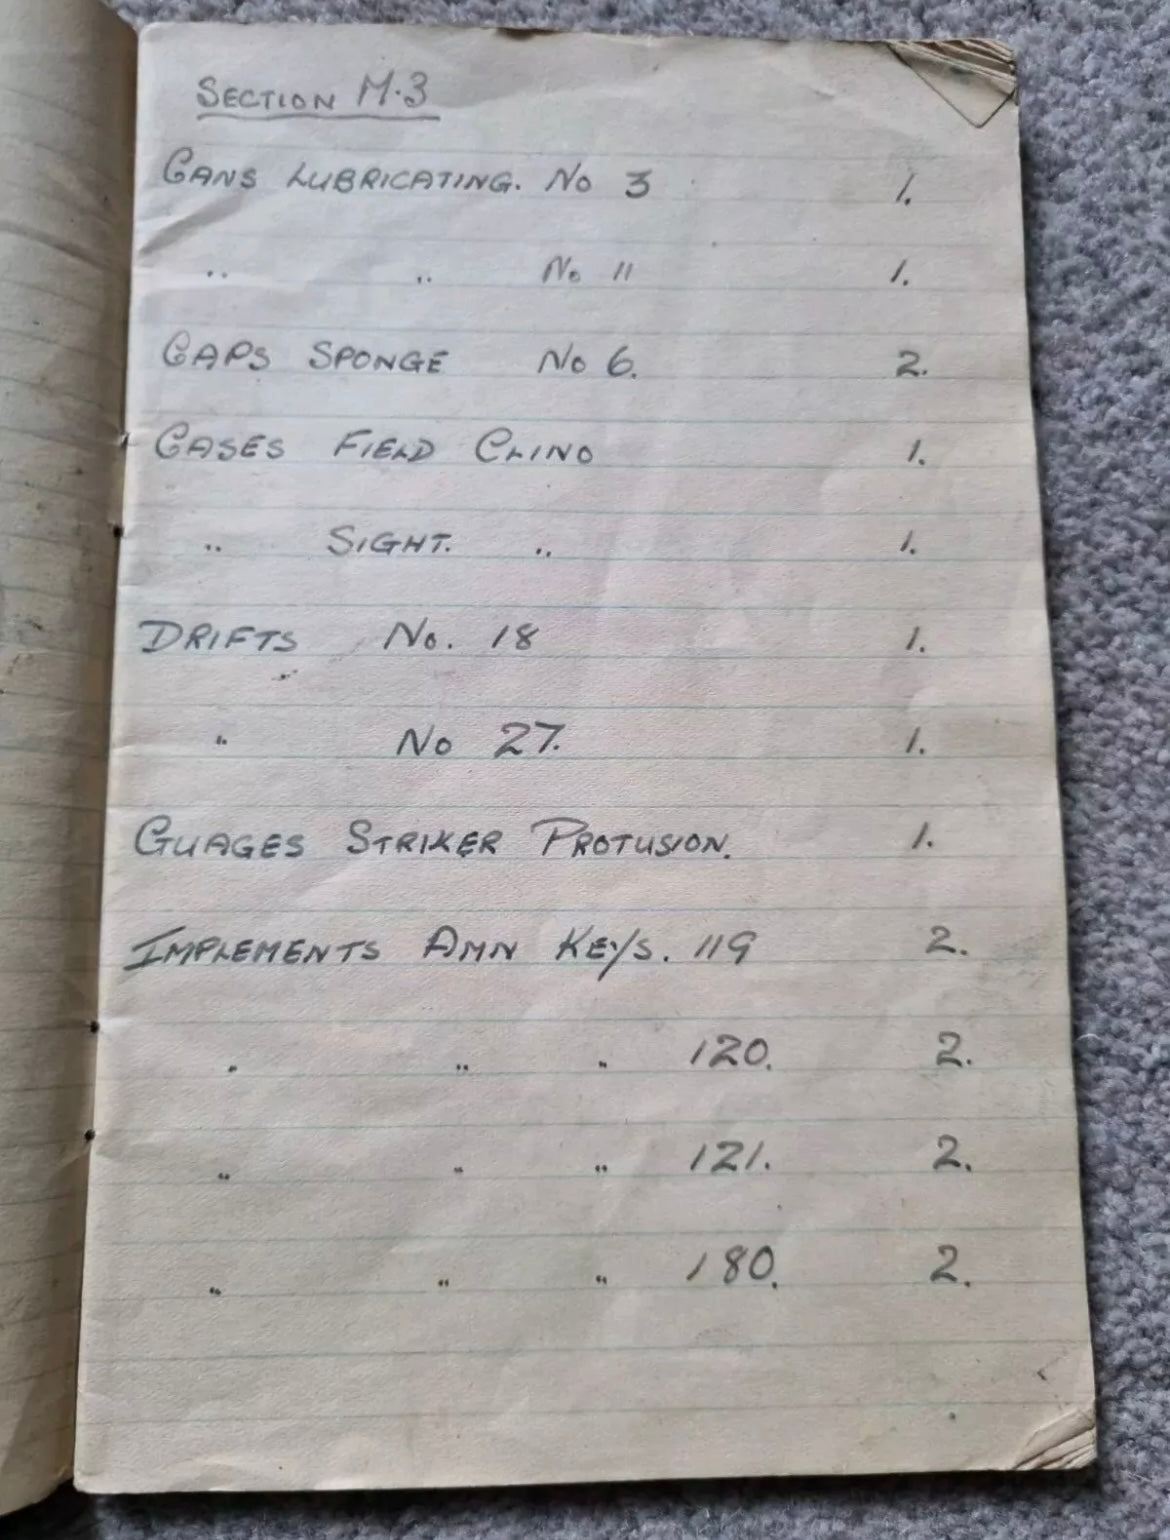 SECTION M.3
CANS LUBRICATING. No 3 1.
" " No 11 1.
CAPS SPONGE No 6. 2.
CASES FIELD CLINO 1.
" SIGHT. " 1.
DRIFTS No. 18 1.
" No 27. 1.
GUAGES STRIKER PROTUSION. 1.
IMPLEMENTS AMN KEYS. 119 2.
" " " 120. 2.
" " " 121. 2.
" " " 180. 2.